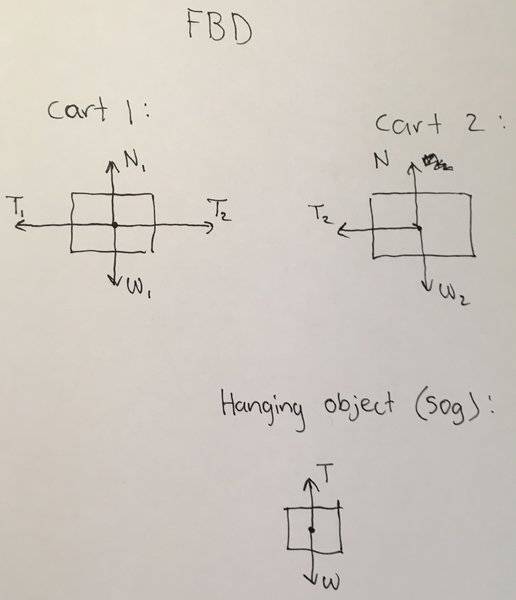 FBD
Cart 1:
N₁
T₁
T₂
W₁
Cart 2:
N
T₂
W₂
Hanging object (50g):
T
W